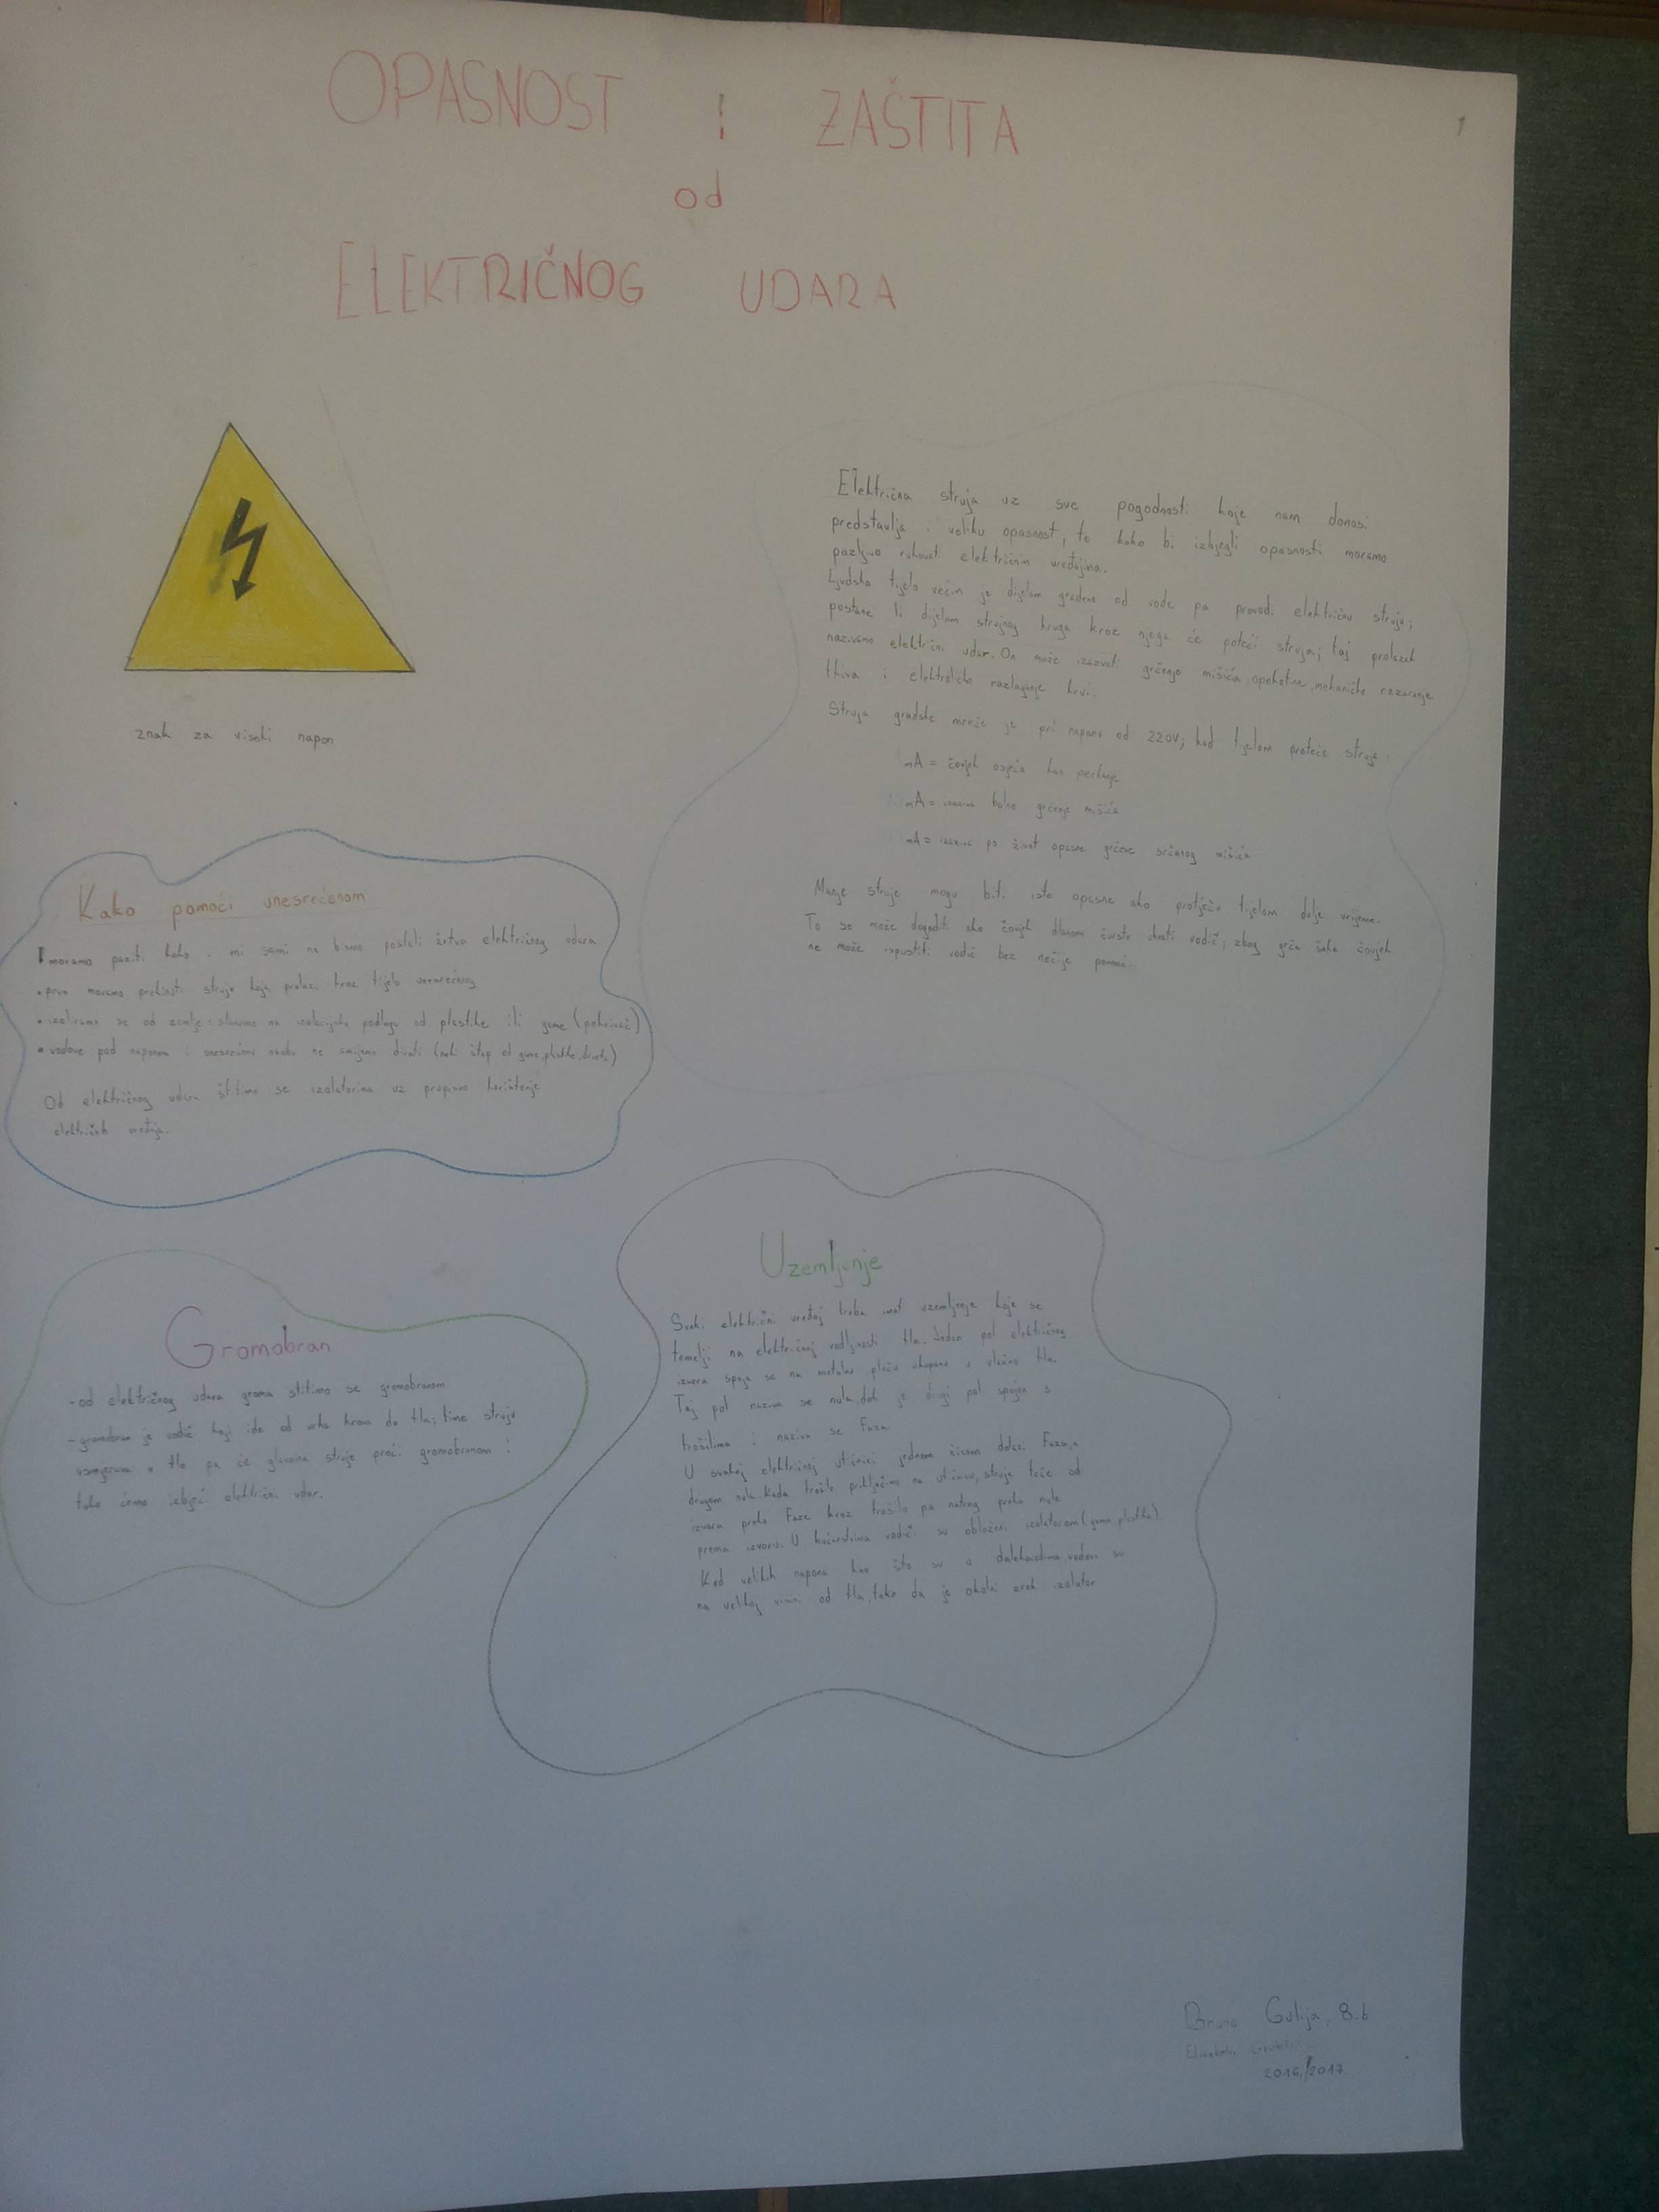 OPASNOST I ZAŠTITA
1
od
ELEKTRIČNOG UDARA
znak za visoki napon
Električna struja uz sve pogodnosti koje nam donosi
predstavlja i veliku opasnost, te kako bi izbjegli opasnosti moramo
pazljivo rukovat električnim uređajima.
Ljudsko tijelo većim je dijelom građeno od vode pa provodi električnu struju;
postane li dijelom strujnog kruga kroz njega će poteći struja; taj prolazak
nazivamo električni udar. On može izazvati grčenje mišića, opekotine, mehaničko razaranje
tkiva i elektroličko razlaganje krvi.
Struja gradske mreže je pri naponu od 220V; kad tijelom proteče struja:
mA = čovjek osjeća kao peckanje
mA = izaziva bolno grčenje mišića
mA = izaziva po život opasne grčeve srčanog mišića
Manje struje mogu biti isto opasne ako protječu tijelom dulje vrijeme.
To se može dogoditi ako čovjek dlanom čvrsto uhvati vodič; zbog grča šake čovjek
ne može ispustiti vodič bez nečije pomoći.
Kako pomoći unesrećenom
moramo paziti kako i mi sami ne bismo postali žrtva električnog udara
• prvo moramo prekinuti struju koja prolazi kroz tijelo unesrećenog
• izoliramo se od zemlje: stanemo na izolacijsku podlogu od plastike ili gume (pokrivač)
• vodove pod naponom i unesrećenu osobu ne smijemo dirati (neki štap od gume, plastike, drveta)
Od električnog udara štitimo se izolatorima uz propisno korištenje
električnih uređaja.
Uzemljenje
Svaki električni uređaj treba imati uzemljenje koje se
temelji na električnoj vodljivosti tla. Jedan pol električnog
izvora spaja se na metalnu ploču ukopanu u vlažno tlo.
Taj pol naziva se nula, dok je drugi pol spojen s
trošilima i naziva se faza.
U svakoj električnoj utičnici jednom žicom dolazi faza, a
drugom nula. Kada trošilo priključimo na utičnicu, struja teče od
izvora preko faze kroz trošilo pa natrag preko nule
prema izvoru. U kućanstvima vodiči su obloženi izolatorom (guma, plastika).
Kod velikih napona kao što su u dalekovodima, vodovi su
na velikoj visini od tla, tako da je okolni zrak izolator
Gromobran
- od električnog udara groma stitimo se gromobranom
- gromobran je vodič koji ide od vrha krova do tla; time struju
usmjerava u tlo pa će glavnina struje proći gromobranom i
tako ćemo izbjeći električni udar.
Bruno Gulija, 8.b
2016./2017.